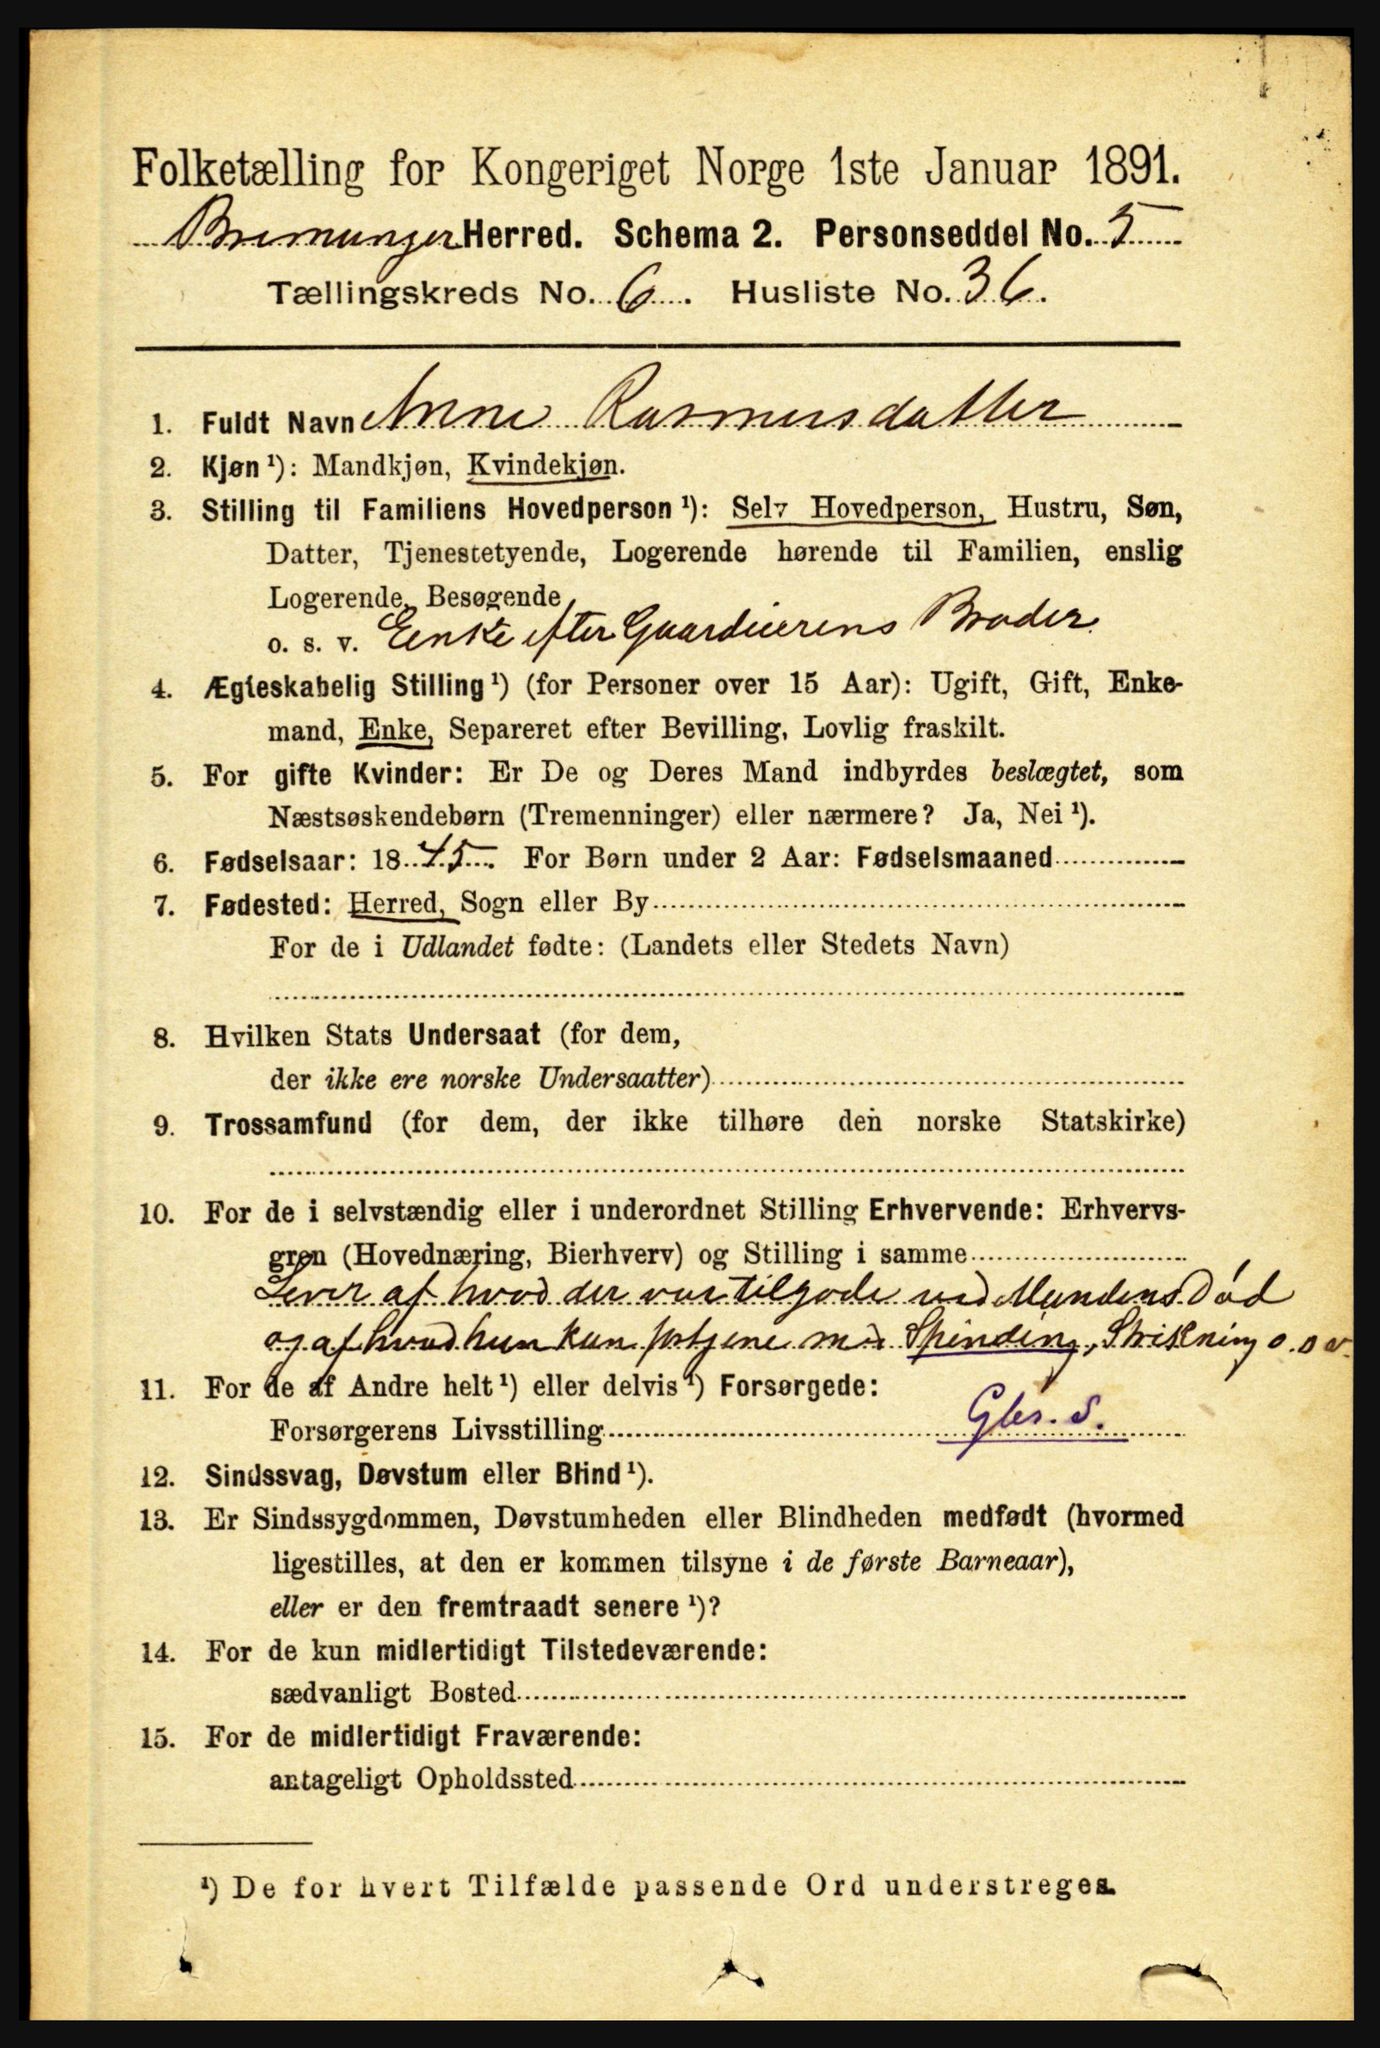 Folketælling for Kongeriget Norge 1ste Januar 1891.
Bremanger Herred. Schema 2. Personseddel No. 5
Tællingskreds No. 6. Husliste No. 36.
1. Fuldt Navn Anne Rasmusdatter
2. Kjøn ¹): Mandkjøn, Kvindekjøn.
3. Stilling til Familiens Hovedperson ¹): Selv Hovedperson, Hustru, Søn,
Datter, Tjenestetyende, Logerende hørende til Familien, enslig
Logerende, Besøgende
o. s. v. Eenke efter Gaardeierens Broder
4. Ægteskabelig Stilling ¹) (for Personer over 15 Aar): Ugift, Gift, Enke-
mand, Enke, Separeret efter Bevilling, Lovlig fraskilt.
5. For gifte Kvinder: Er De og Deres Mand indbyrdes beslægtet, som
Næstsøskendebørn (Tremenninger) eller nærmere? Ja, Nei ¹).
6. Fødselsaar: 1845. For Børn under 2 Aar: Fødselsmaaned
7. Fødested: Herred, Sogn eller By
For de i Udlandet fødte: (Landets eller Stedets Navn)
8. Hvilken Stats Undersaat (for dem,
der ikke ere norske Undersaatter)
9. Trossamfund (for dem, der ikke tilhøre den norske Statskirke)
10. For de i selvstændig eller i underordnet Stilling Erhvervende: Erhvervs-
gren (Hovednæring, Bierhverv) og Stilling i samme
Lever af hvad der var tilgode ved Mandens Død
og af hvad hun kan fortjene med Spinding, Strikning o.s.v.
11. For de af Andre helt ¹) eller delvis ¹) Forsørgede:
Forsørgerens Livsstilling Gbr. S.
12. Sindssvag, Døvstum eller Blind ¹).
13. Er Sindssygdommen, Døvstumheden eller Blindheden medfødt (hvormed
ligestilles, at den er kommen tilsyne i de første Barneaar),
eller er den fremtraadt senere ¹)?
14. For de kun midlertidigt Tilstedeværende:
sædvanligt Bosted
15. For de midlertidigt Fraværende:
antageligt Opholdssted
¹) De for hvert Tilfælde passende Ord understreges.